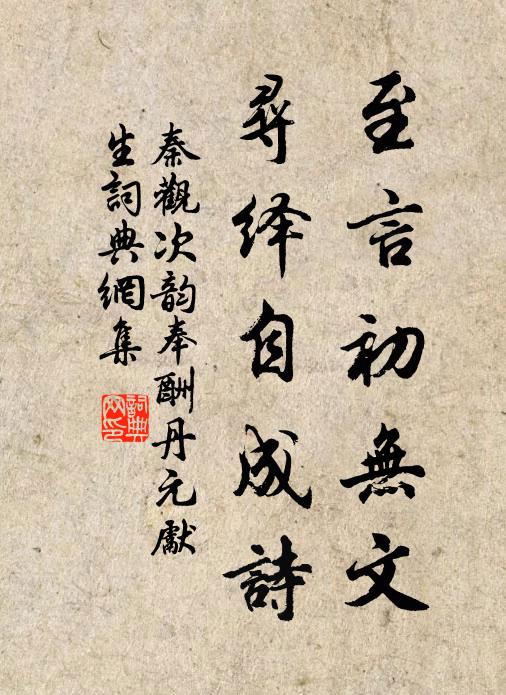 至言初無文
尋绎自成詩
秦觀次韵奉酬丹元獻
生詞典網集
詞典網印